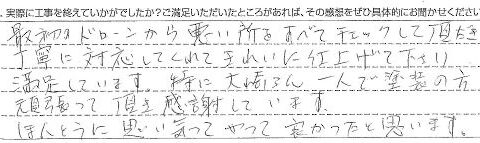 実際に工事を終えていかがでしたか?ご満足いただいたところがあれば、その感想をぜひ具体的にお聞かせください
最初のドローンから悪い所をすべてチェックして頂き
丁寧に対応してくれてきれいに仕上げて下さり
満足しています。特に大崎さん一人で塗装の方
頑張って頂き感謝しています。
ほんとうに思い気ってやって良かったと思います。